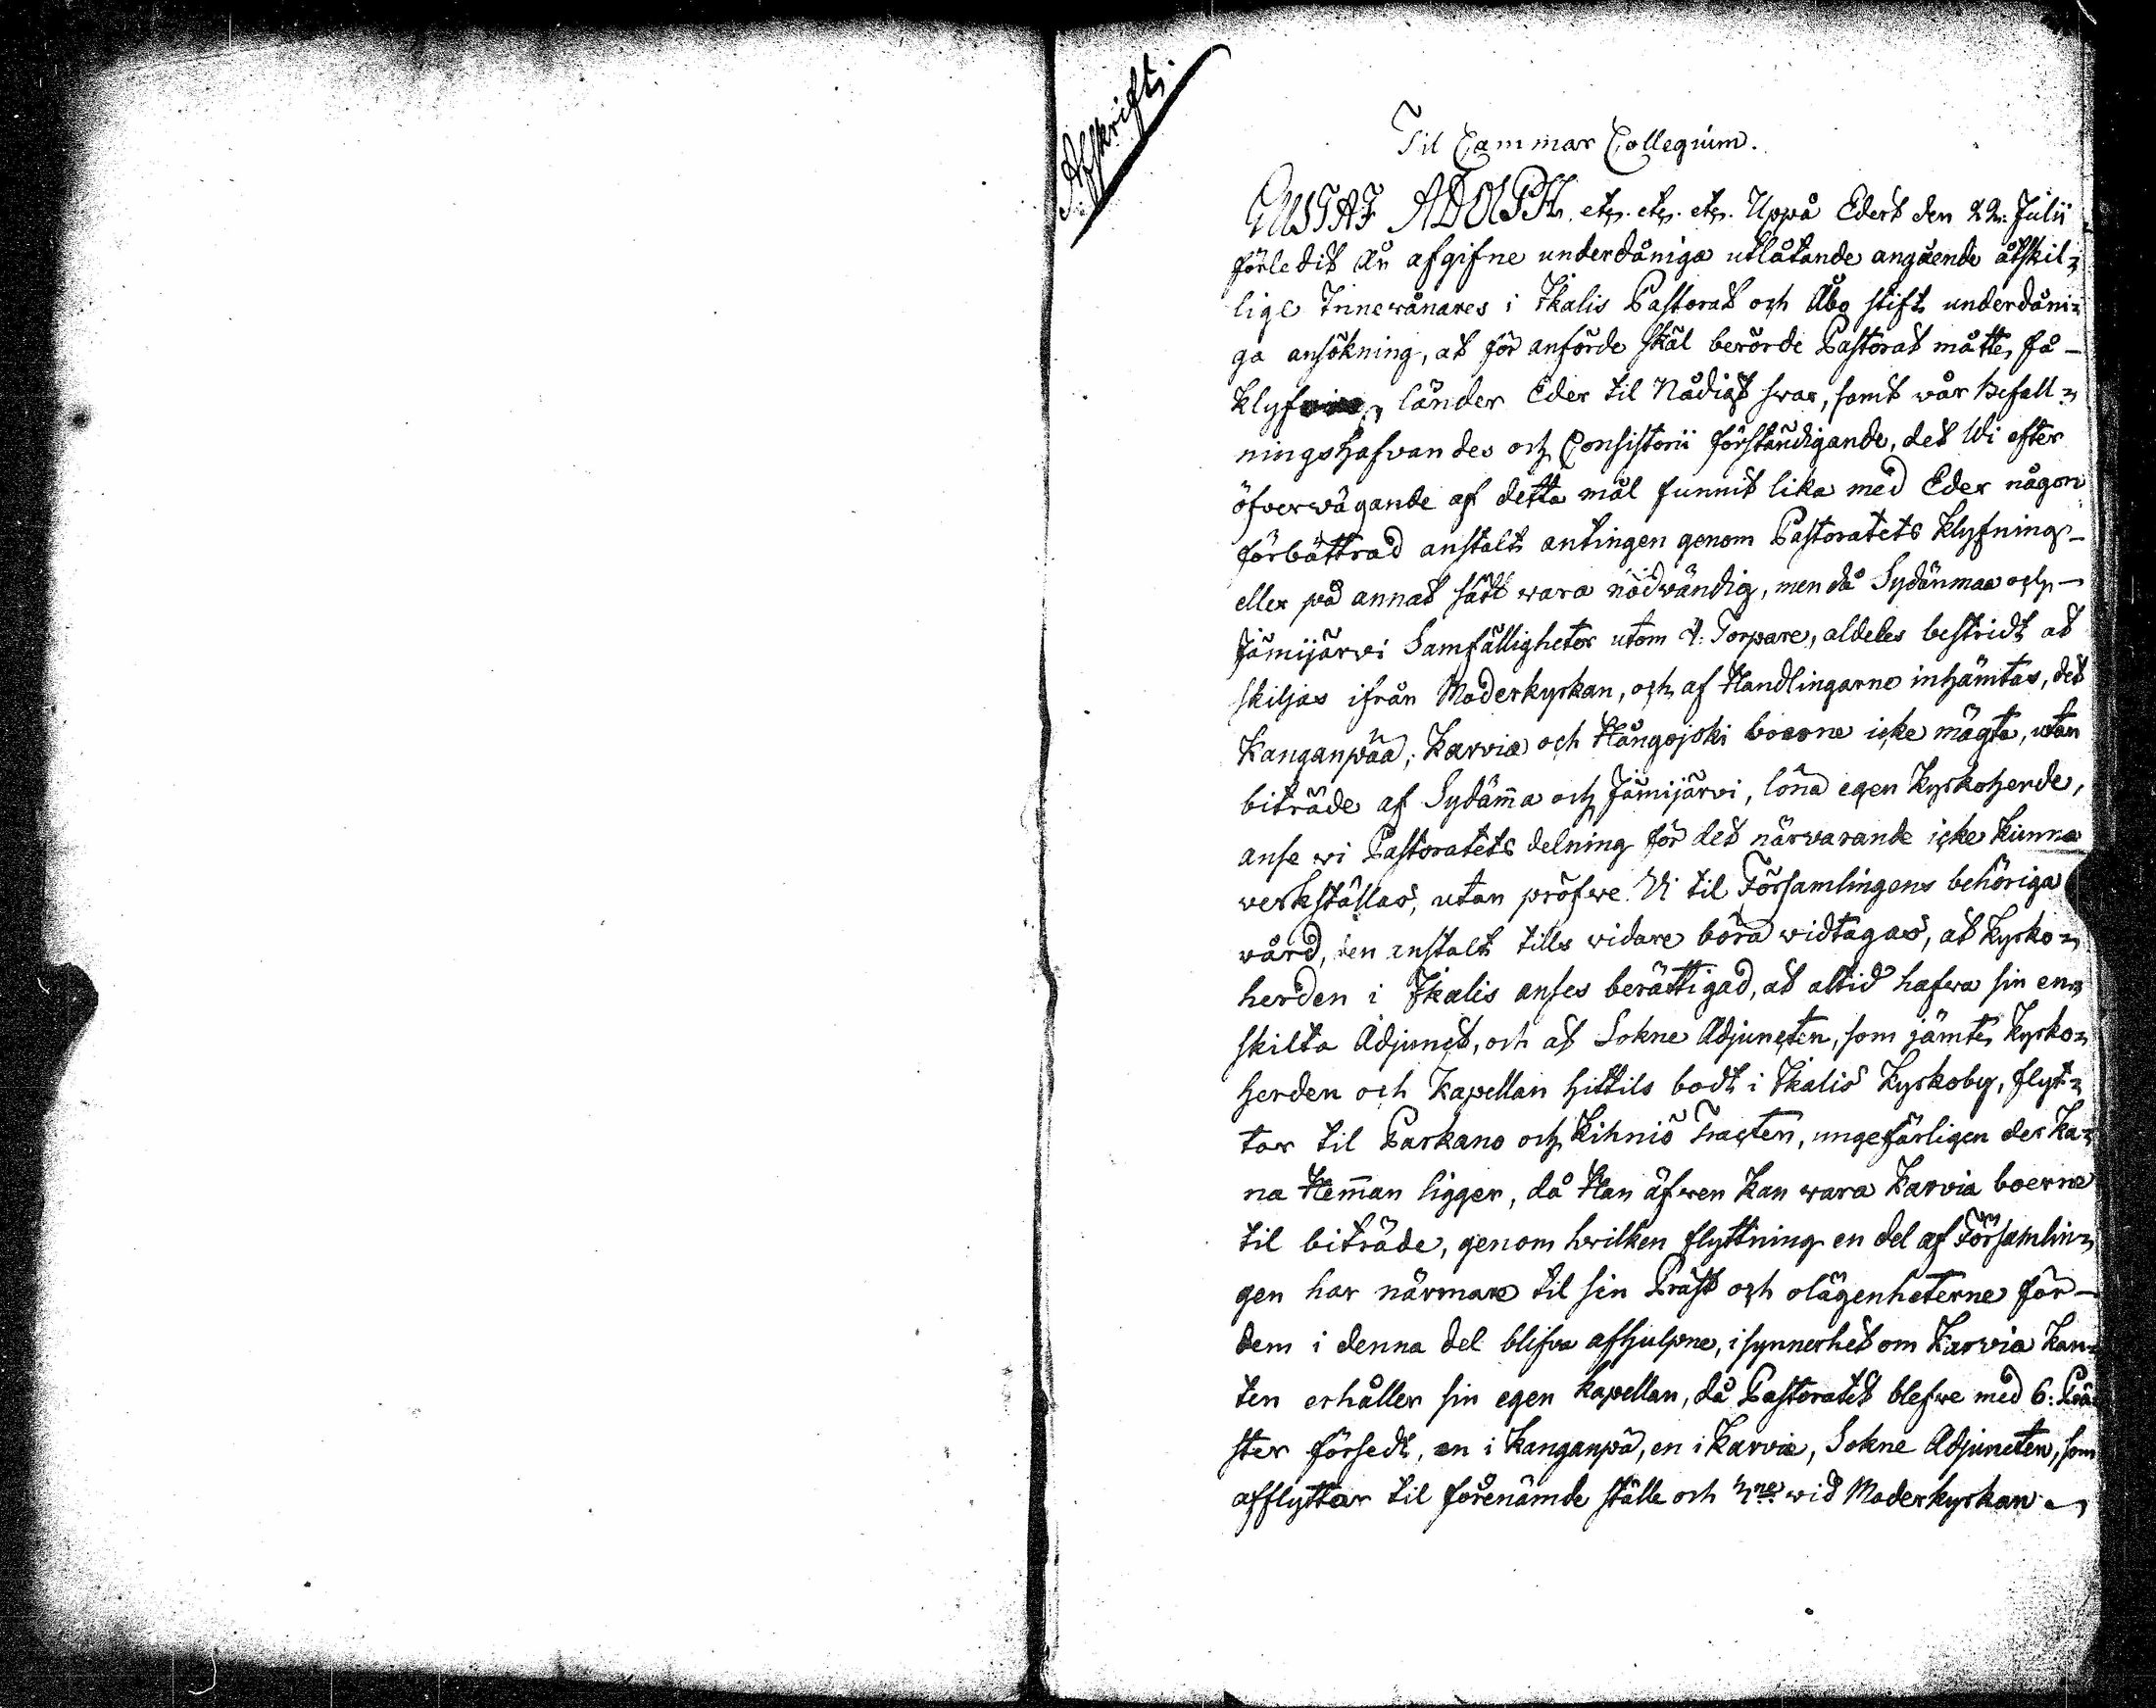 Afskrift.
Til Cammar Collegium.
GUSTAF ADOLPH. etc. etc. etc. Uppå Edert den 22. Julii
förledit år afgifne underdåniga utlåtande angående åtskil=
lige Innevånares i Ikalis Pastorat och Åbo stift underdåni=
ga ansökning, at för anförde skäl berörde Pastorat måtte få
klyf länder Eder til Nådigt svar, samt vår Befall=
ningshafvandes och Consistorii förständigande, det Wi efter
öfverwägande af detta mål funnit lika med Eder någon
förbättrad anstalt antingen genom Pastoratets klyfning
eller på annat sätt wara nödwändig, men då Sydänmaa och
Jämijärvi Samfälligheter utom 4: Torpare, aldeles bestridt at
skiljas ifrån Moderkyrkan, och af Handlingarne inhämtas, det
Kanganpää, Karvia och Hångojoki boerne icke mägta, utan
biträde af Sydäm̅a och Jämijärvi, löna egen Kyrkoherde,
anse wi Pastoratets delning för det närvarande icke kunna
verkställas, utan pröfwe Wi til Församlingens behöriga
vård, den anstalt tills vidare böra widtagas, at Kyrko=
herden i Ikalis anses berättigad, at altid hafva sin en=
skilta Adjunct, och at Sokne Adjuncten, som jämte Kyrko=
herden och Kapellan hittils bodt i Ikalis Kyrkoby, flyt=
tar til Parkano och Kihniö Tracten, ungefärligen der Ka=
na Hem̅an ligger, då Han äfwen kan wara Karvia boerne
til biträde, genom hvilken flyttning en del af Församlin=
gen har närmare til sin Präst och olägenheterne för
dem i denna del blifva afhulpne, i synnerhet om Karvia kan=
ten erhåller sin egen Kapellan, då Pastoratet blefve med 6: Prä=
ster försedt, en i Kanganpä, en i Karvia, Sokne Adjuncten, som
afflyttar til förenämde ställe och 3ne wid Moderkyrkan